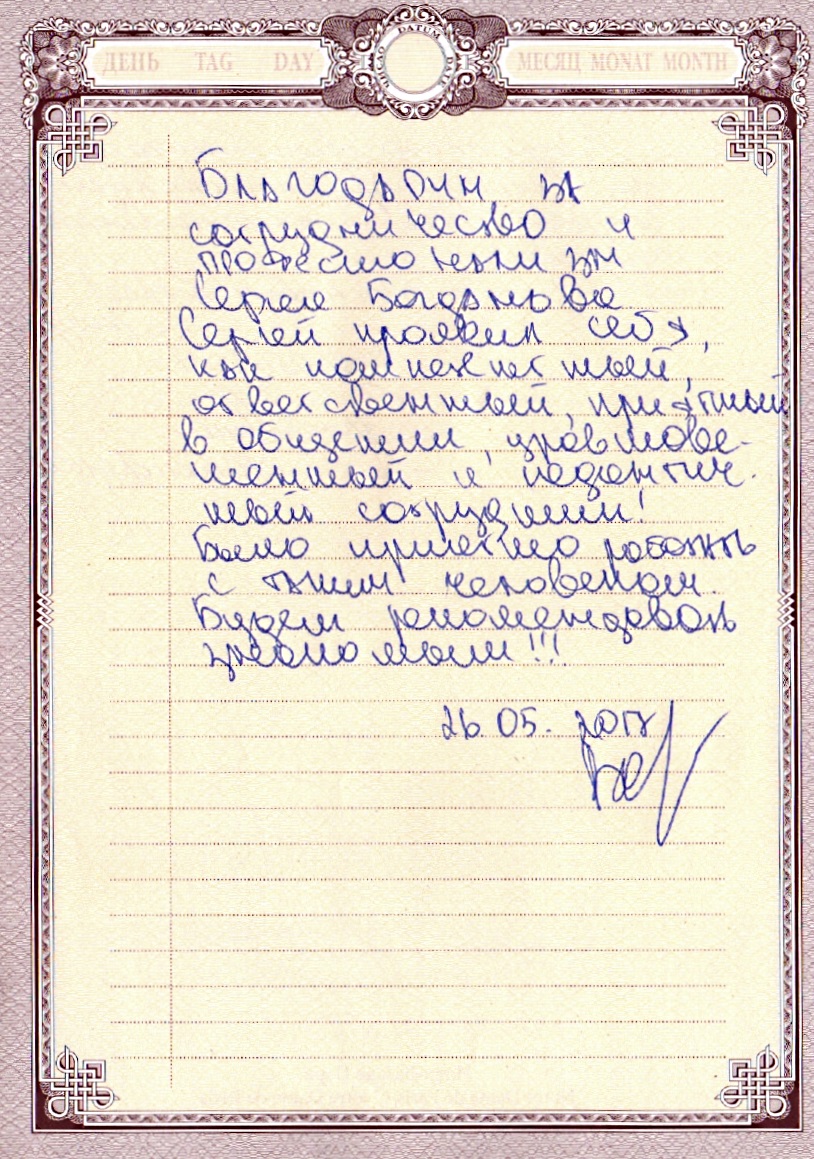 ДЕНЬ TAG DAY
DATUM
МЕСЯЦ MONAT MONTH
Благодарим за
сотрудничество и
профессионализм
Сергея Богданова
Сергей проявил себя,
как компетентный,
ответственный, приятный
в общении, уравнове-
шенный и педантич-
ный сотрудник!
Было приятно работать
с таким человеком.
Будем рекомендовать
знакомым!!!
26.05.2017